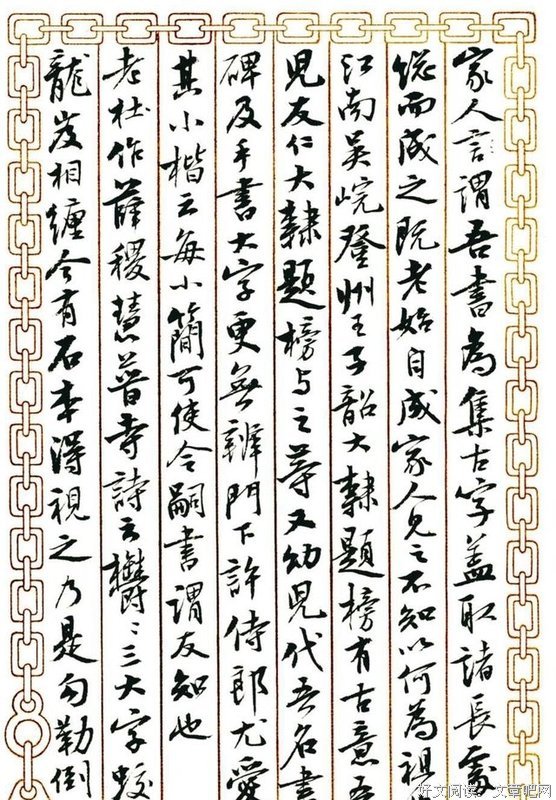 家人言謂吾書為集古字盖取諸長處
総而成之既老始自成家人見之不知以何為祖
江南吳皖登州王子韶大隸題榜有古意吾
児友仁大隸題榜与之等又幼児代吾名書
碑及手書大字更無辨門下許侍郎尤愛
其小楷云每小簡可使令嗣書謂友知也
老杜作薛稷慧普寺詩云欝〻三大字蛟
龍岌相纏今有石本得視之乃是勾勒倒
好文阅读，文章吧网